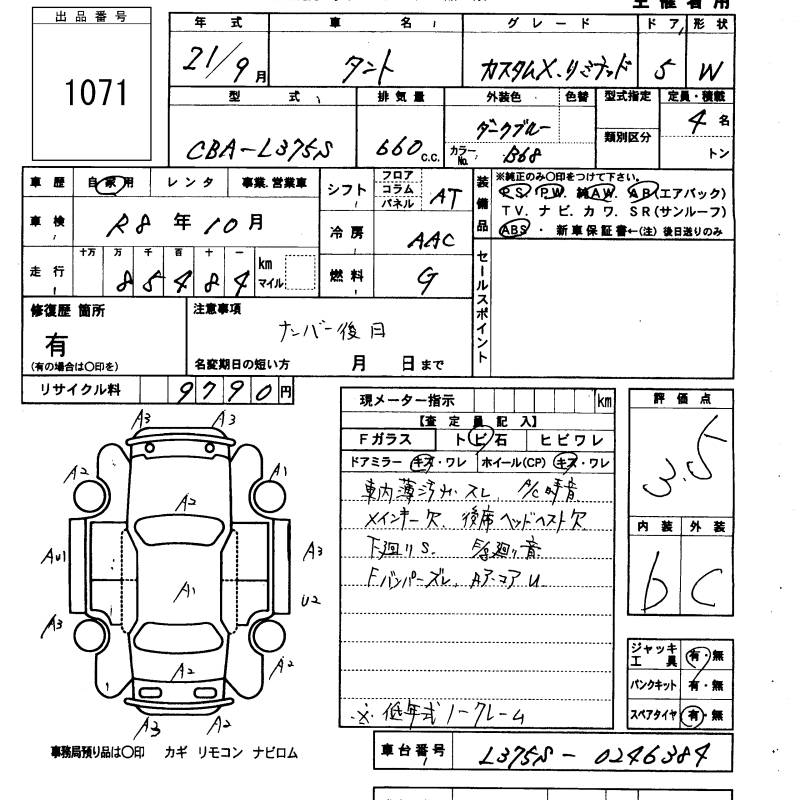 主催者用
出品番号
1071
年式 車名 グレード ドア 形状
21/9月 タント カスタムX.リミテッド 5 W
型式 排気量 外装色 色替 型式指定 定員・積載
CBA-L375S 660c.c. ダークブルー カラーNo. B68 類別区分 4名 トン
車歴 自家用 レンタ 事業.営業車
車検 R8年10月
走行 十万 万 千 百 十 一 km マイル
85484
シフト フロア コラム パネル AT
冷房 AAC
燃料 G
装備品
※純正のみ〇印をつけて下さい。
PS. PW. 純AW. AB(エアバック)
TV. ナビ. カワ. SR(サンルーフ)
ABS ・ 新車保証書←(注) 後日送りのみ
セールスポイント
修復歴 箇所
有
(有の場合は〇印を)
注意事項
ナンバー後日
名変期日の短い方 月 日まで
リサイクル料 9790円
現メーター指示 km
【査定員記入】
Fガラス トビ石 ヒビワレ
ドアミラー キズ・ワレ ホイール(CP) キズ・ワレ
車内薄汚れ.スレ. A/C異音
メインキー欠. 後席ヘッドレスト欠
下廻りS.
Fバンパーズレ.
※ 低年式ノークレーム
評価点
3.5
内装 外装
b C
ジャッキ工具 有・無
パンクキット 有・無
スペアタイヤ 有・無
A3 A3
A2 A1
A2
AU1 A3
A1
U2
A3 A2
A2
A3 A2
事務局預り品は〇印 カギ リモコン ナビロム
車台番号 L375S-0246384